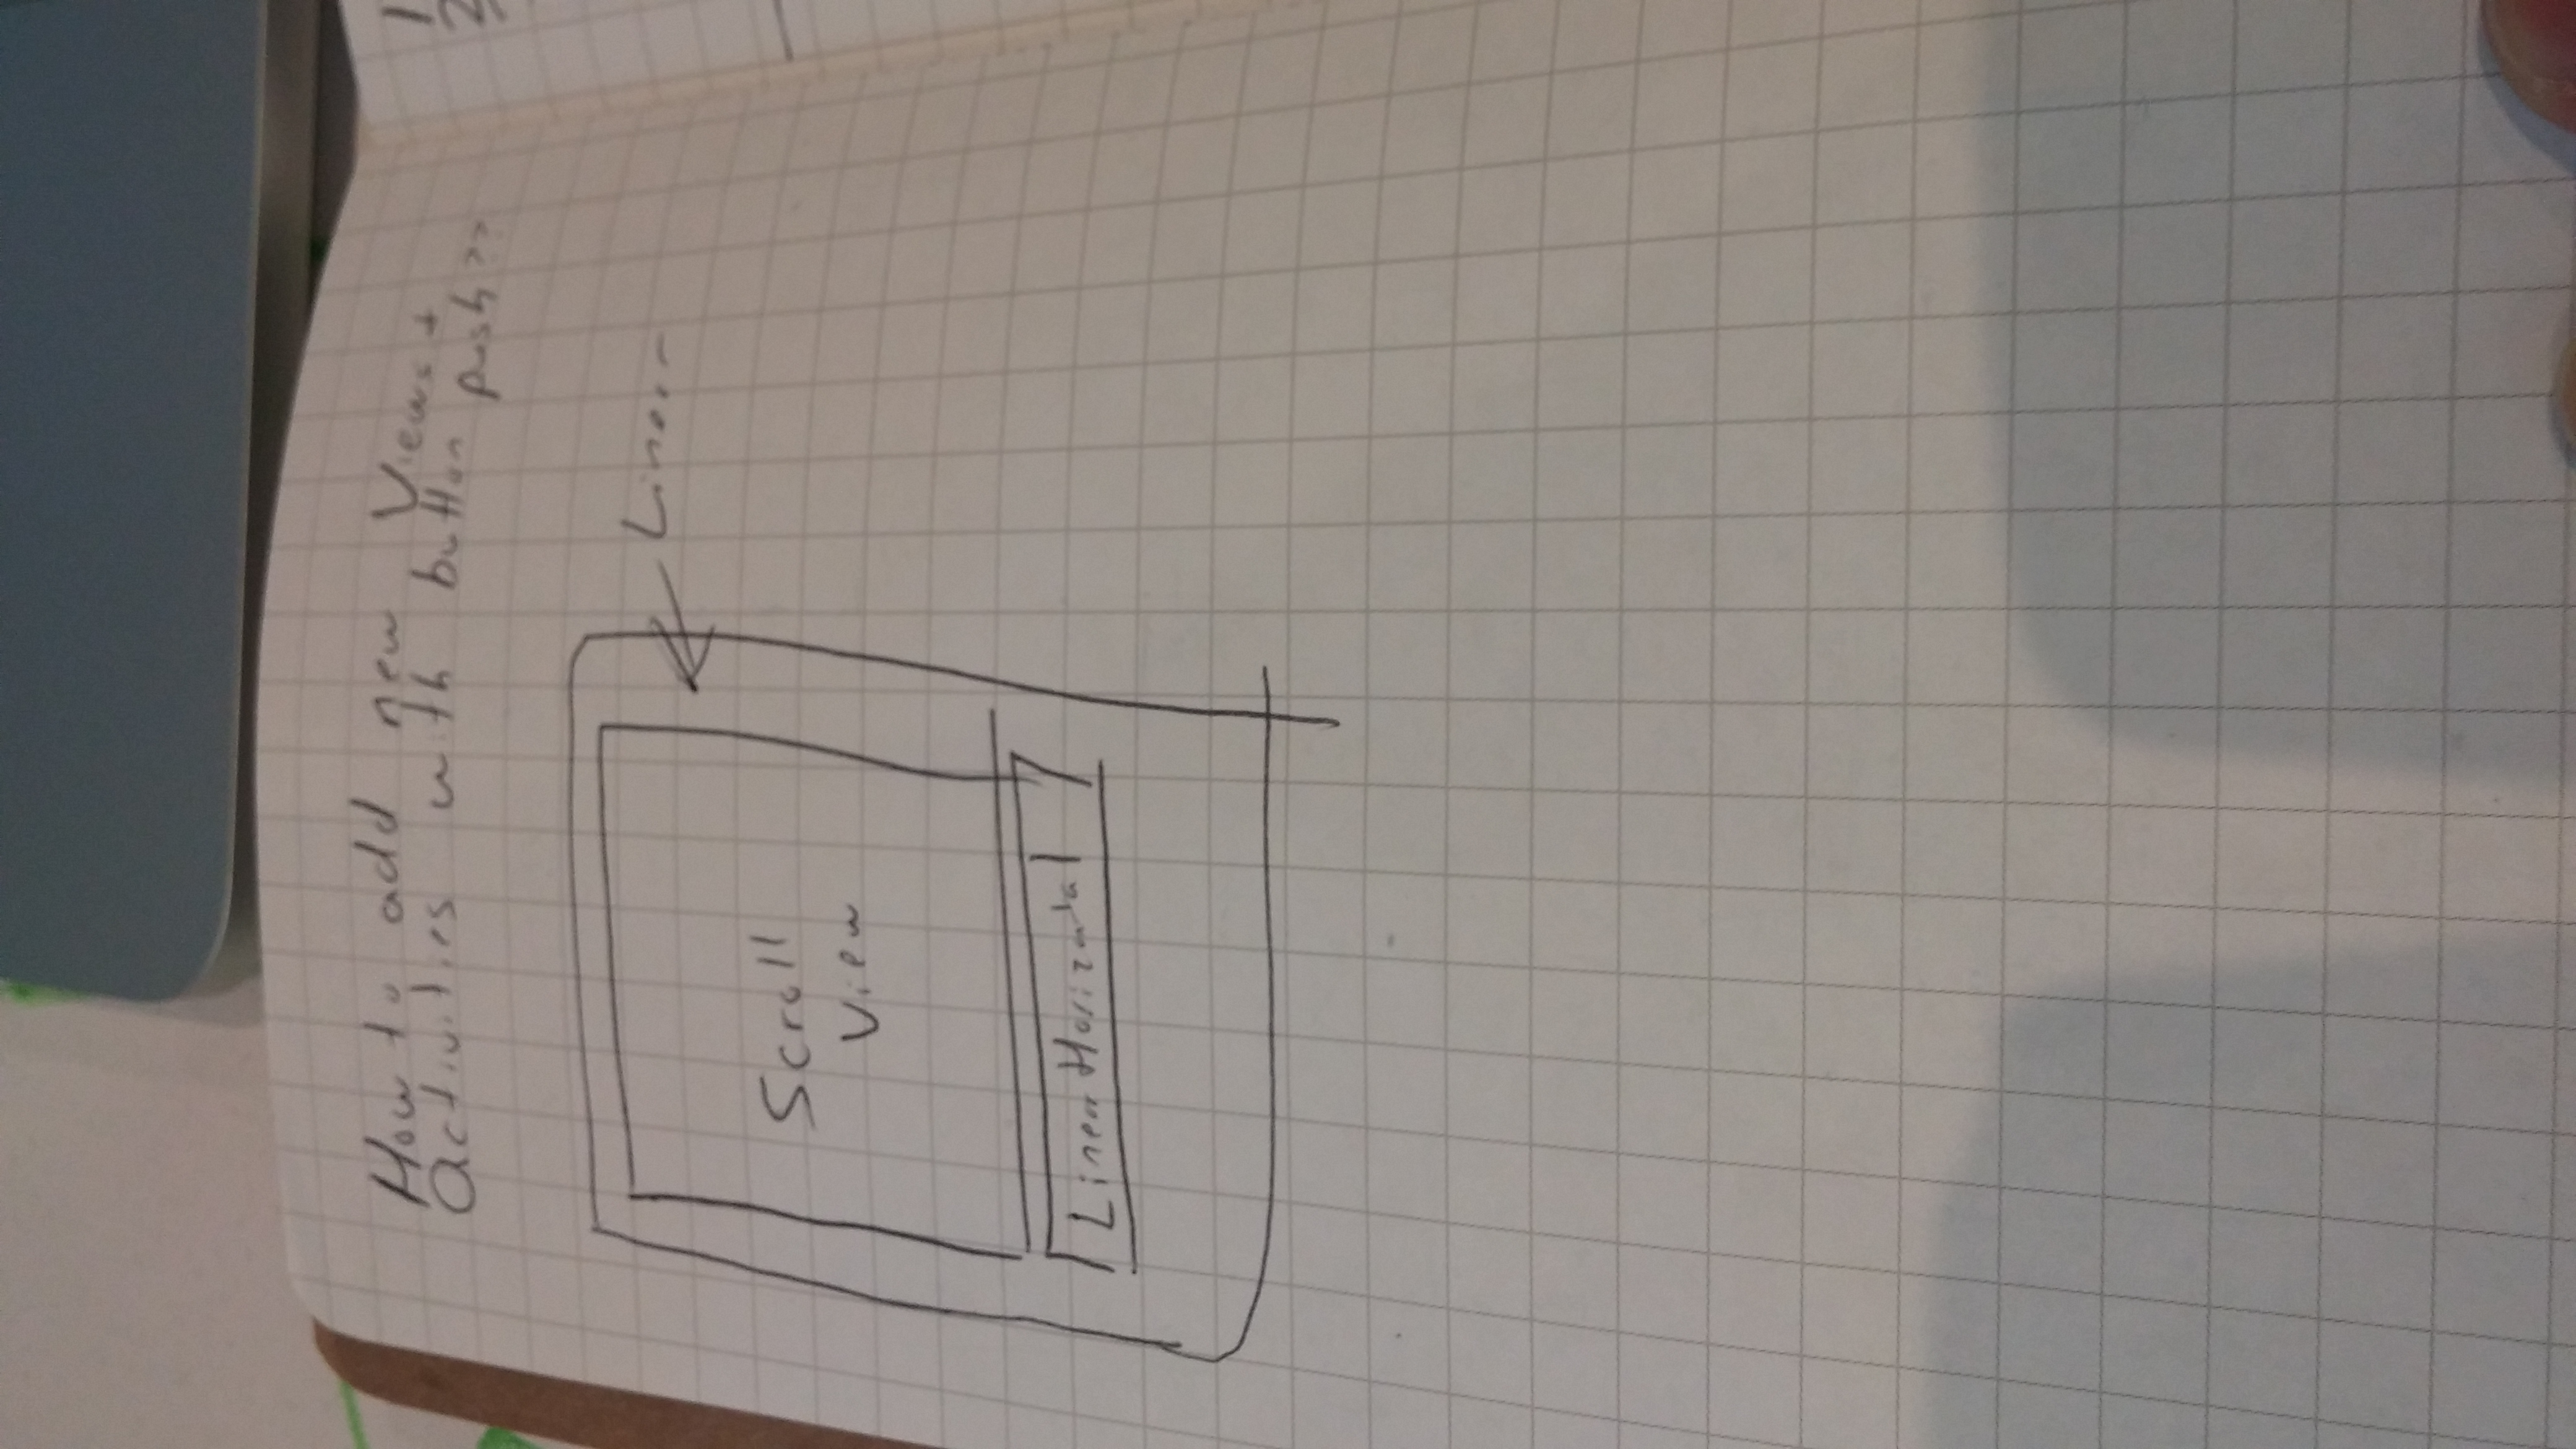 How to add new Views +
Activities with button push??
Linear
Scroll
View
Linear Horizontal
1
2